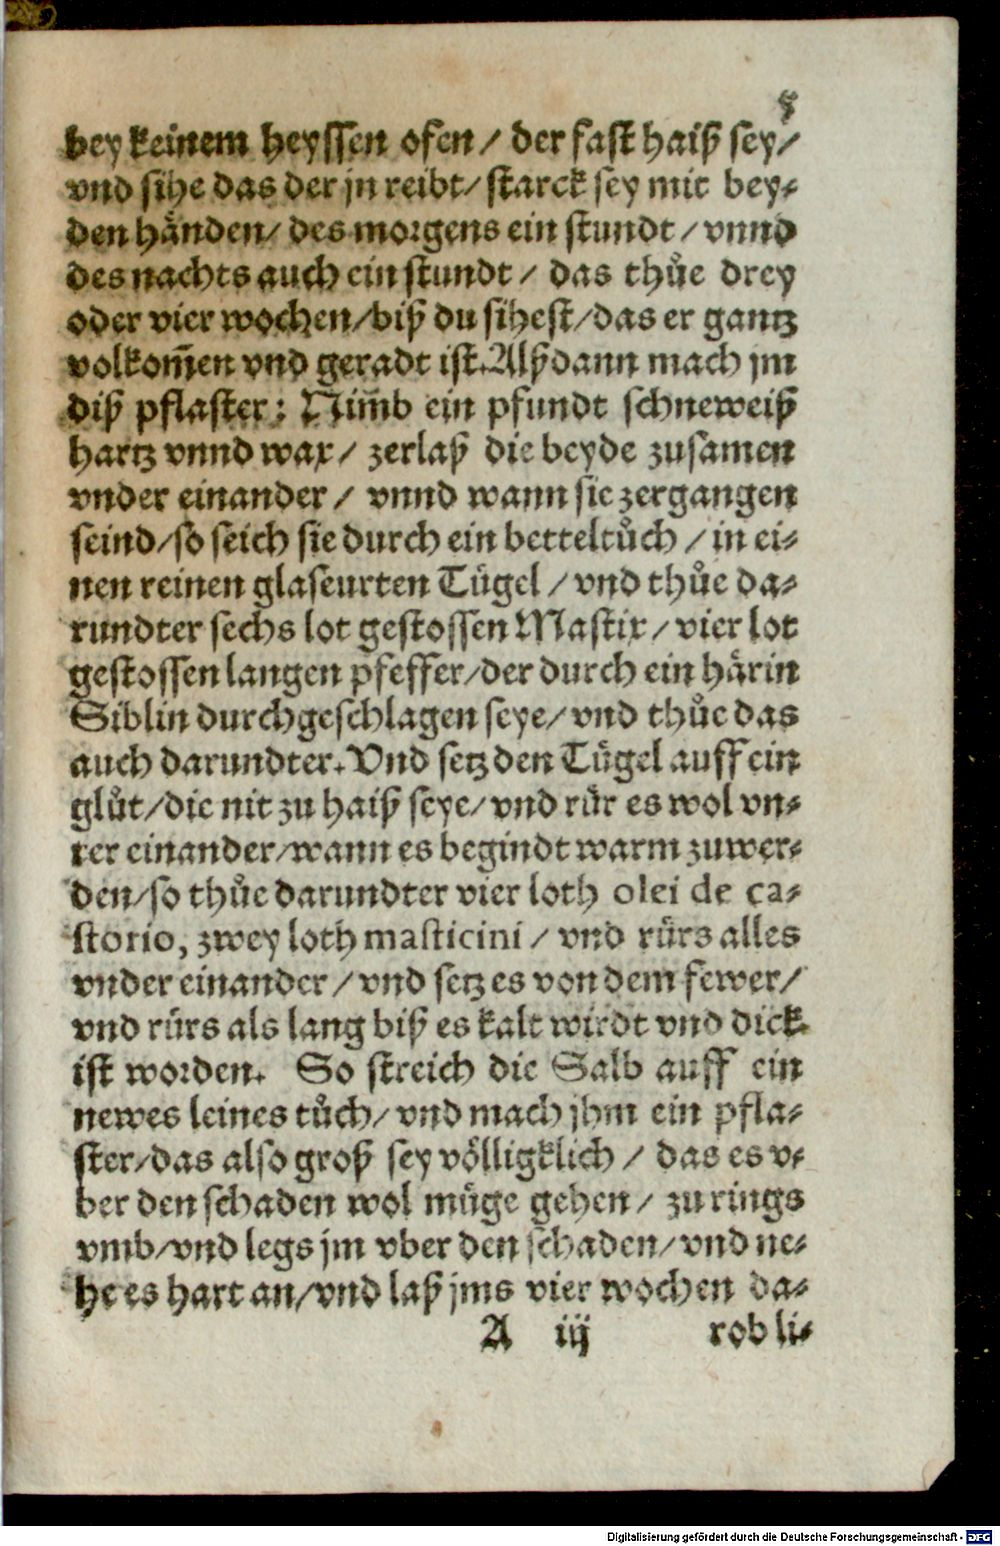 5
bey keinem heyssen ofen / der fast haiß sey /
vnd sihe das der jn reibt / starck sey mit bey⸗
den hånden / des morgens ein stundt / vnnd
des nachts auch ein stundt / das thůe drey
oder vier wochen / biß du sihest / das er gantz
volkom̃en vnd geradt ist. Alßdann mach jm
diß pflaster: Nim̃b ein pfundt schneweiß
hartz vnnd wax / zerlaß die beyde zusamen
vnder einander / vnnd wann sie zergangen
seind / so seich sie durch ein betteltůch / in ei⸗
nen reinen glaseurten Tügel / vnd thůe da⸗
rundter sechs lot gestossen Mastix / vier lot
gestossen langen pfeffer / der durch ein härin
Siblin durchgeschlagen seye / vnd thůe das
auch darundter. Vnd setz den Tügel auff ein
glůt / die nit zu haiß seye / vnd rür es wol vn⸗
ter einander / wann es begindt warm zuwer⸗
den / so thůe darundter vier loth olei de ca⸗
storio, zwey loth masticini / vnd rürs alles
vnder einander / vnd setz es von dem fewer /
vnd rürs als lang biß es kalt wirdt vnd dick
ist worden. So streich die Salb auff ein
newes leines tůch / vnd mach jhm ein pfla⸗
ster / das also groß sey völligklich / das es v⸗
ber den schaden wol müge gehen / zu rings
vmb / vnd legs jm vber den schaden / vnd ne⸗
he es hart an / vnd laß jms vier wochen da⸗
A iij rob li⸗
Digitalisierung gefördert durch die Deutsche Forschungsgemeinschaft - DFG